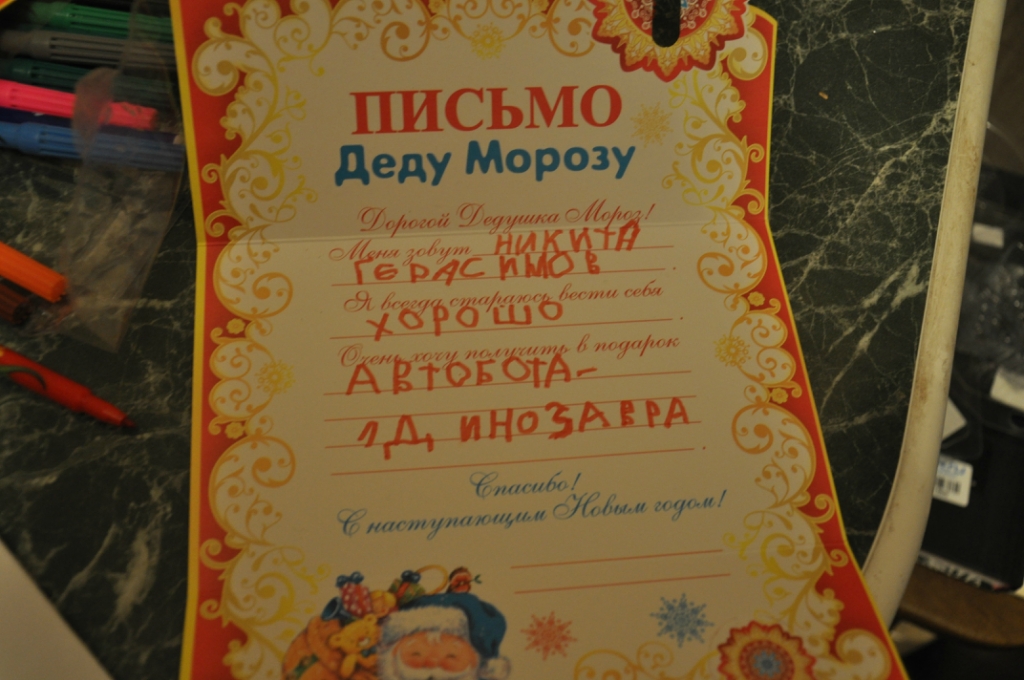 ПИСЬМО
Деду Морозу
Дорогой Дедушка Мороз!
Меня зовут НИКИТА
ГЕРАСИМОВ.
Я всегда стараюсь вести себя
ХОРОШО.
Очень хочу получить в подарок
АВТОБОТА-
1Д, ИНОЗАВРА.
Спасибо!
С наступающим Новым годом!